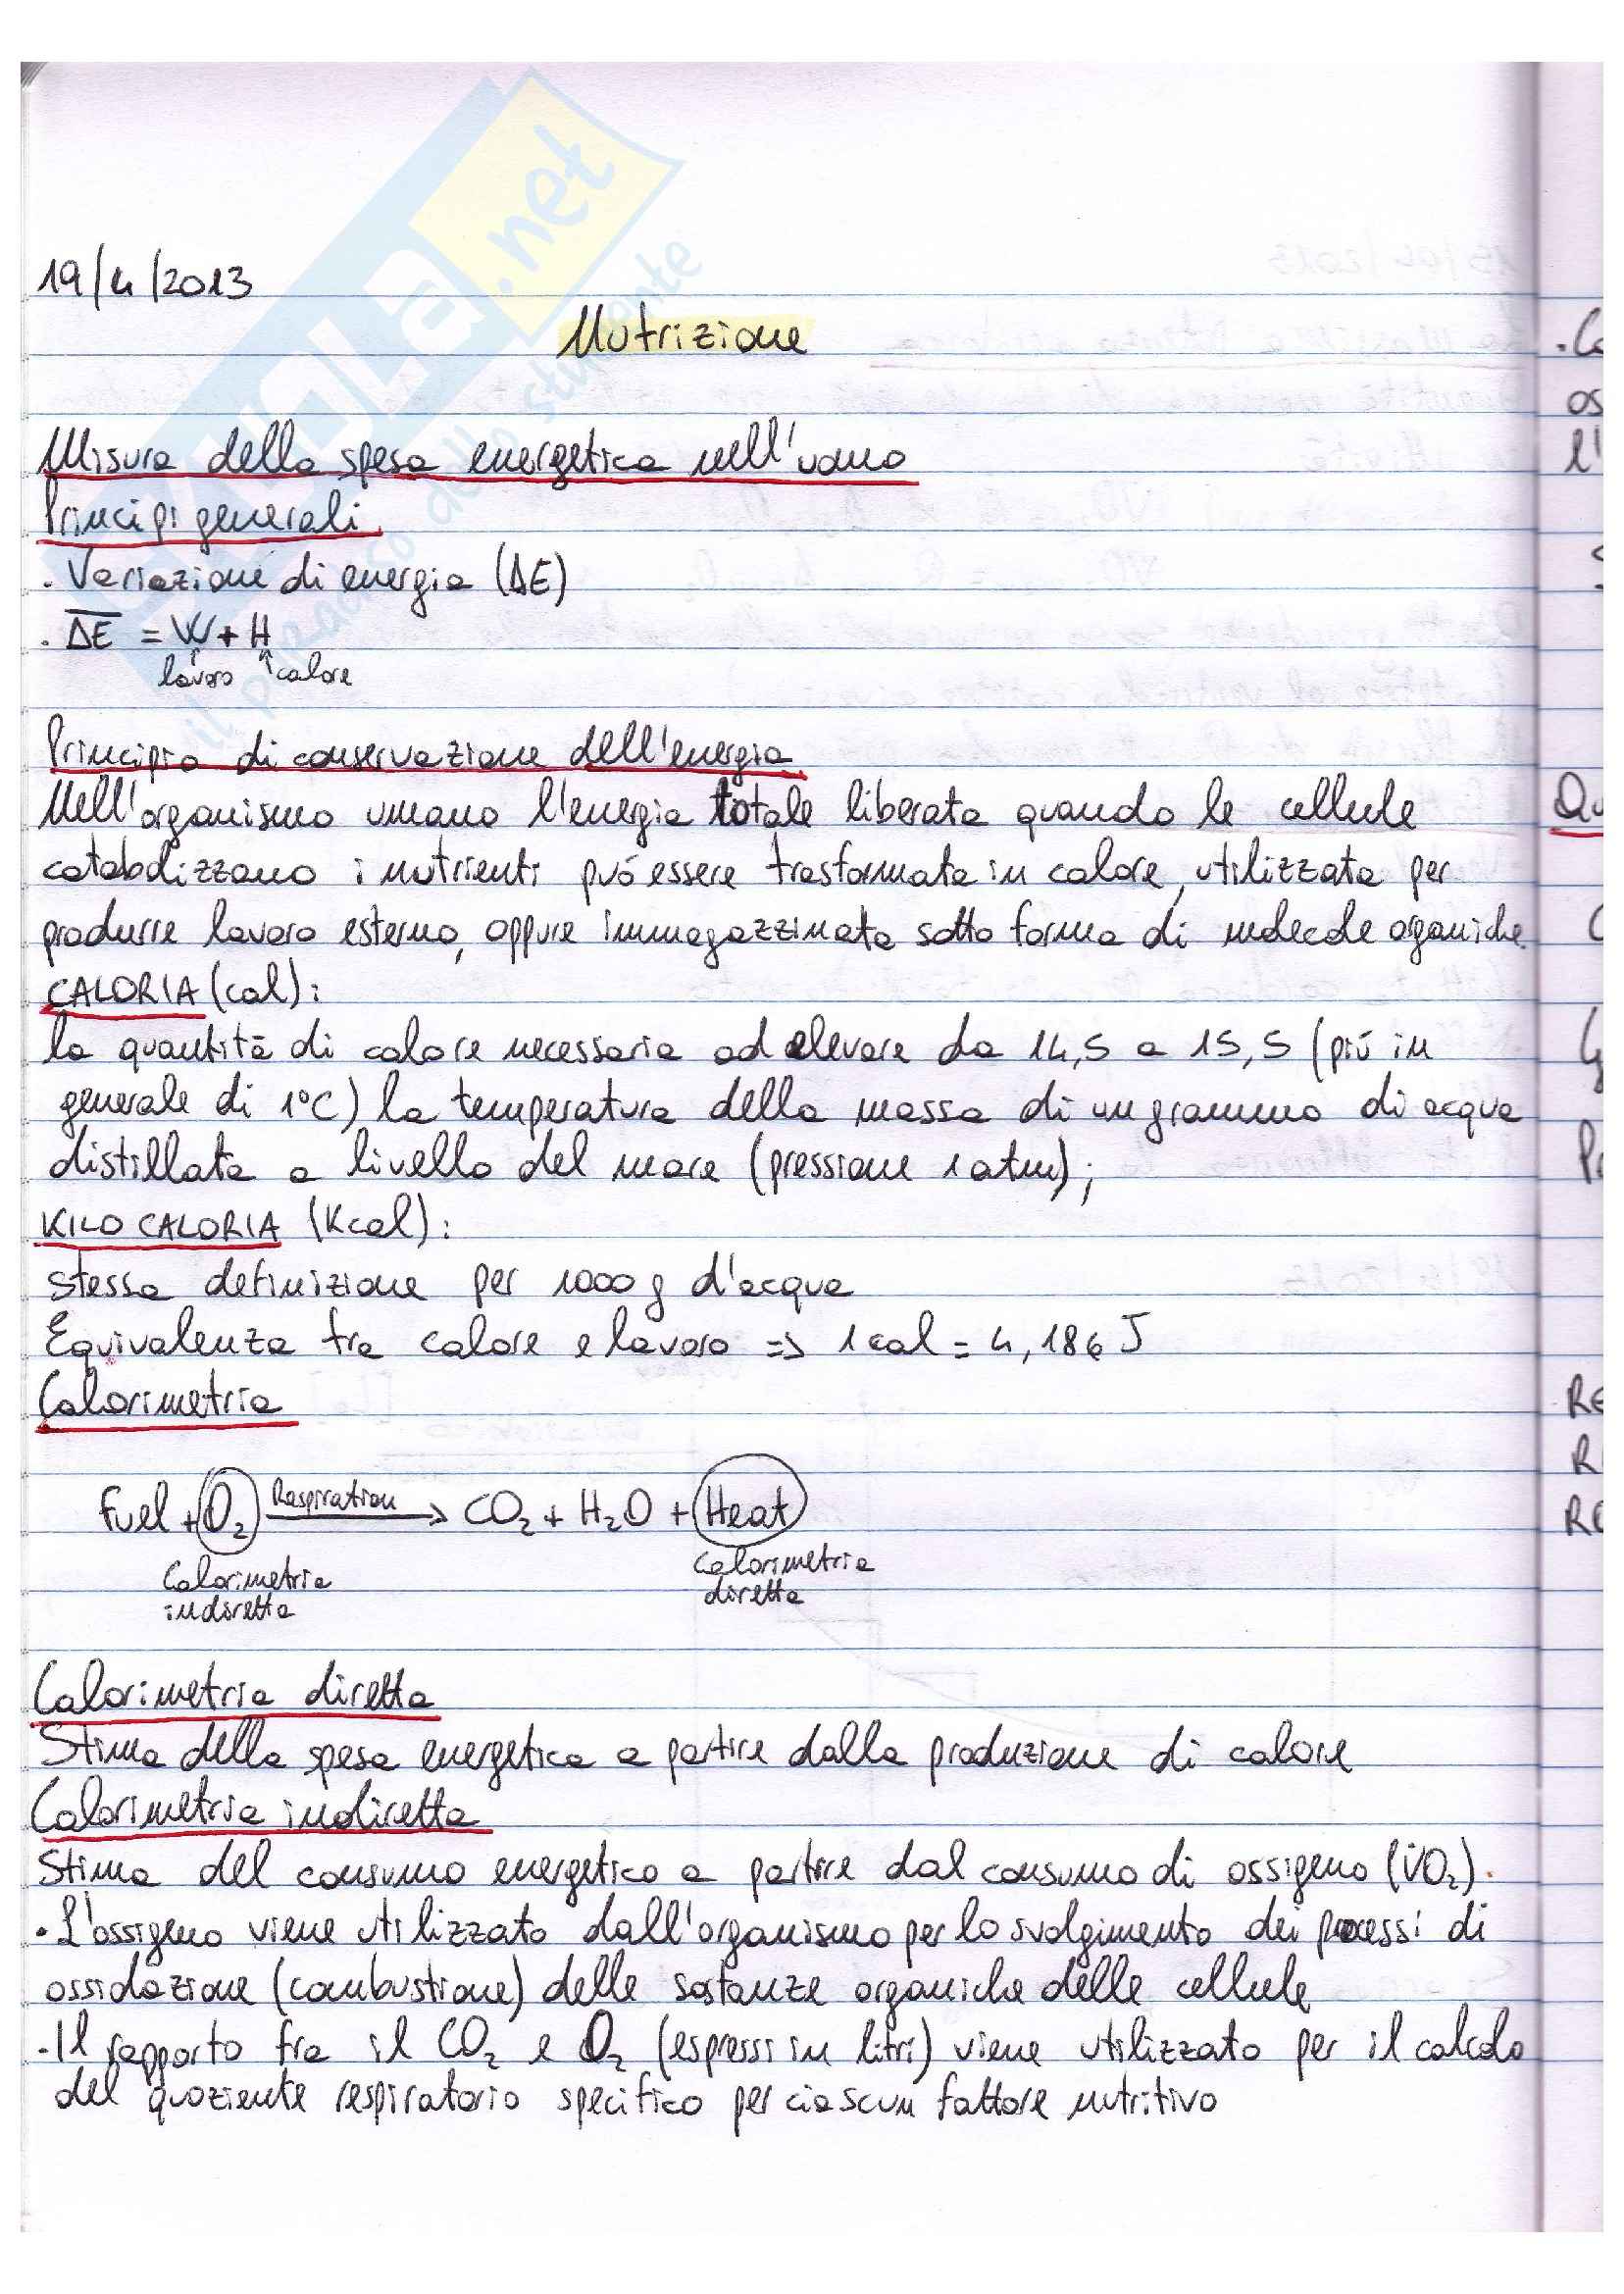 19/4/2013
Nutrizione
Misura della spesa energetica nell'uomo
Principi generali
. Variazione di energia (ΔE)
. ΔE = W + H
lavoro calore
Principio di conservazione dell'energia
Nell'organismo umano l'energia totale liberata quando le cellule
catabolizzano i nutrienti puó essere trasformata in calore, utilizzata per
produrre lavoro esterno, oppure immagazzinata sotto forma di molecole organiche.
CALORIA (cal):
la quantità di calore necessaria ad elevare da 14,5 a 15,5 (piú in
generale di 1°C) la temperatura della massa di un grammo di acqua
distillata a livello del mare (pressione 1 atm);
KILO CALORIA (Kcal):
stessa definizione per 1000 g d'acqua
Equivalenza tra calore e lavoro => 1 cal = 4,186 J
Calorimetria
Fuel + O₂ Respiration → CO₂ + H₂O + Heat
Calorimetria indiretta
Calorimetria diretta
Calorimetria diretta
Stima della spesa energetica a partire dalla produzione di calore
Calorimetria indiretta
Stima del consumo energetico a partire dal consumo di ossigeno (V̇O₂).
• L'ossigeno viene utilizzato dall'organismo per lo svolgimento dei processi di
ossidazione (combustione) delle sostanze organiche delle cellule
- Il rapporto fra il CO₂ e O₂ (espressi in litri) viene utilizzato per il calcolo
del quoziente respiratorio specifico per ciascun fattore nutritivo
.net